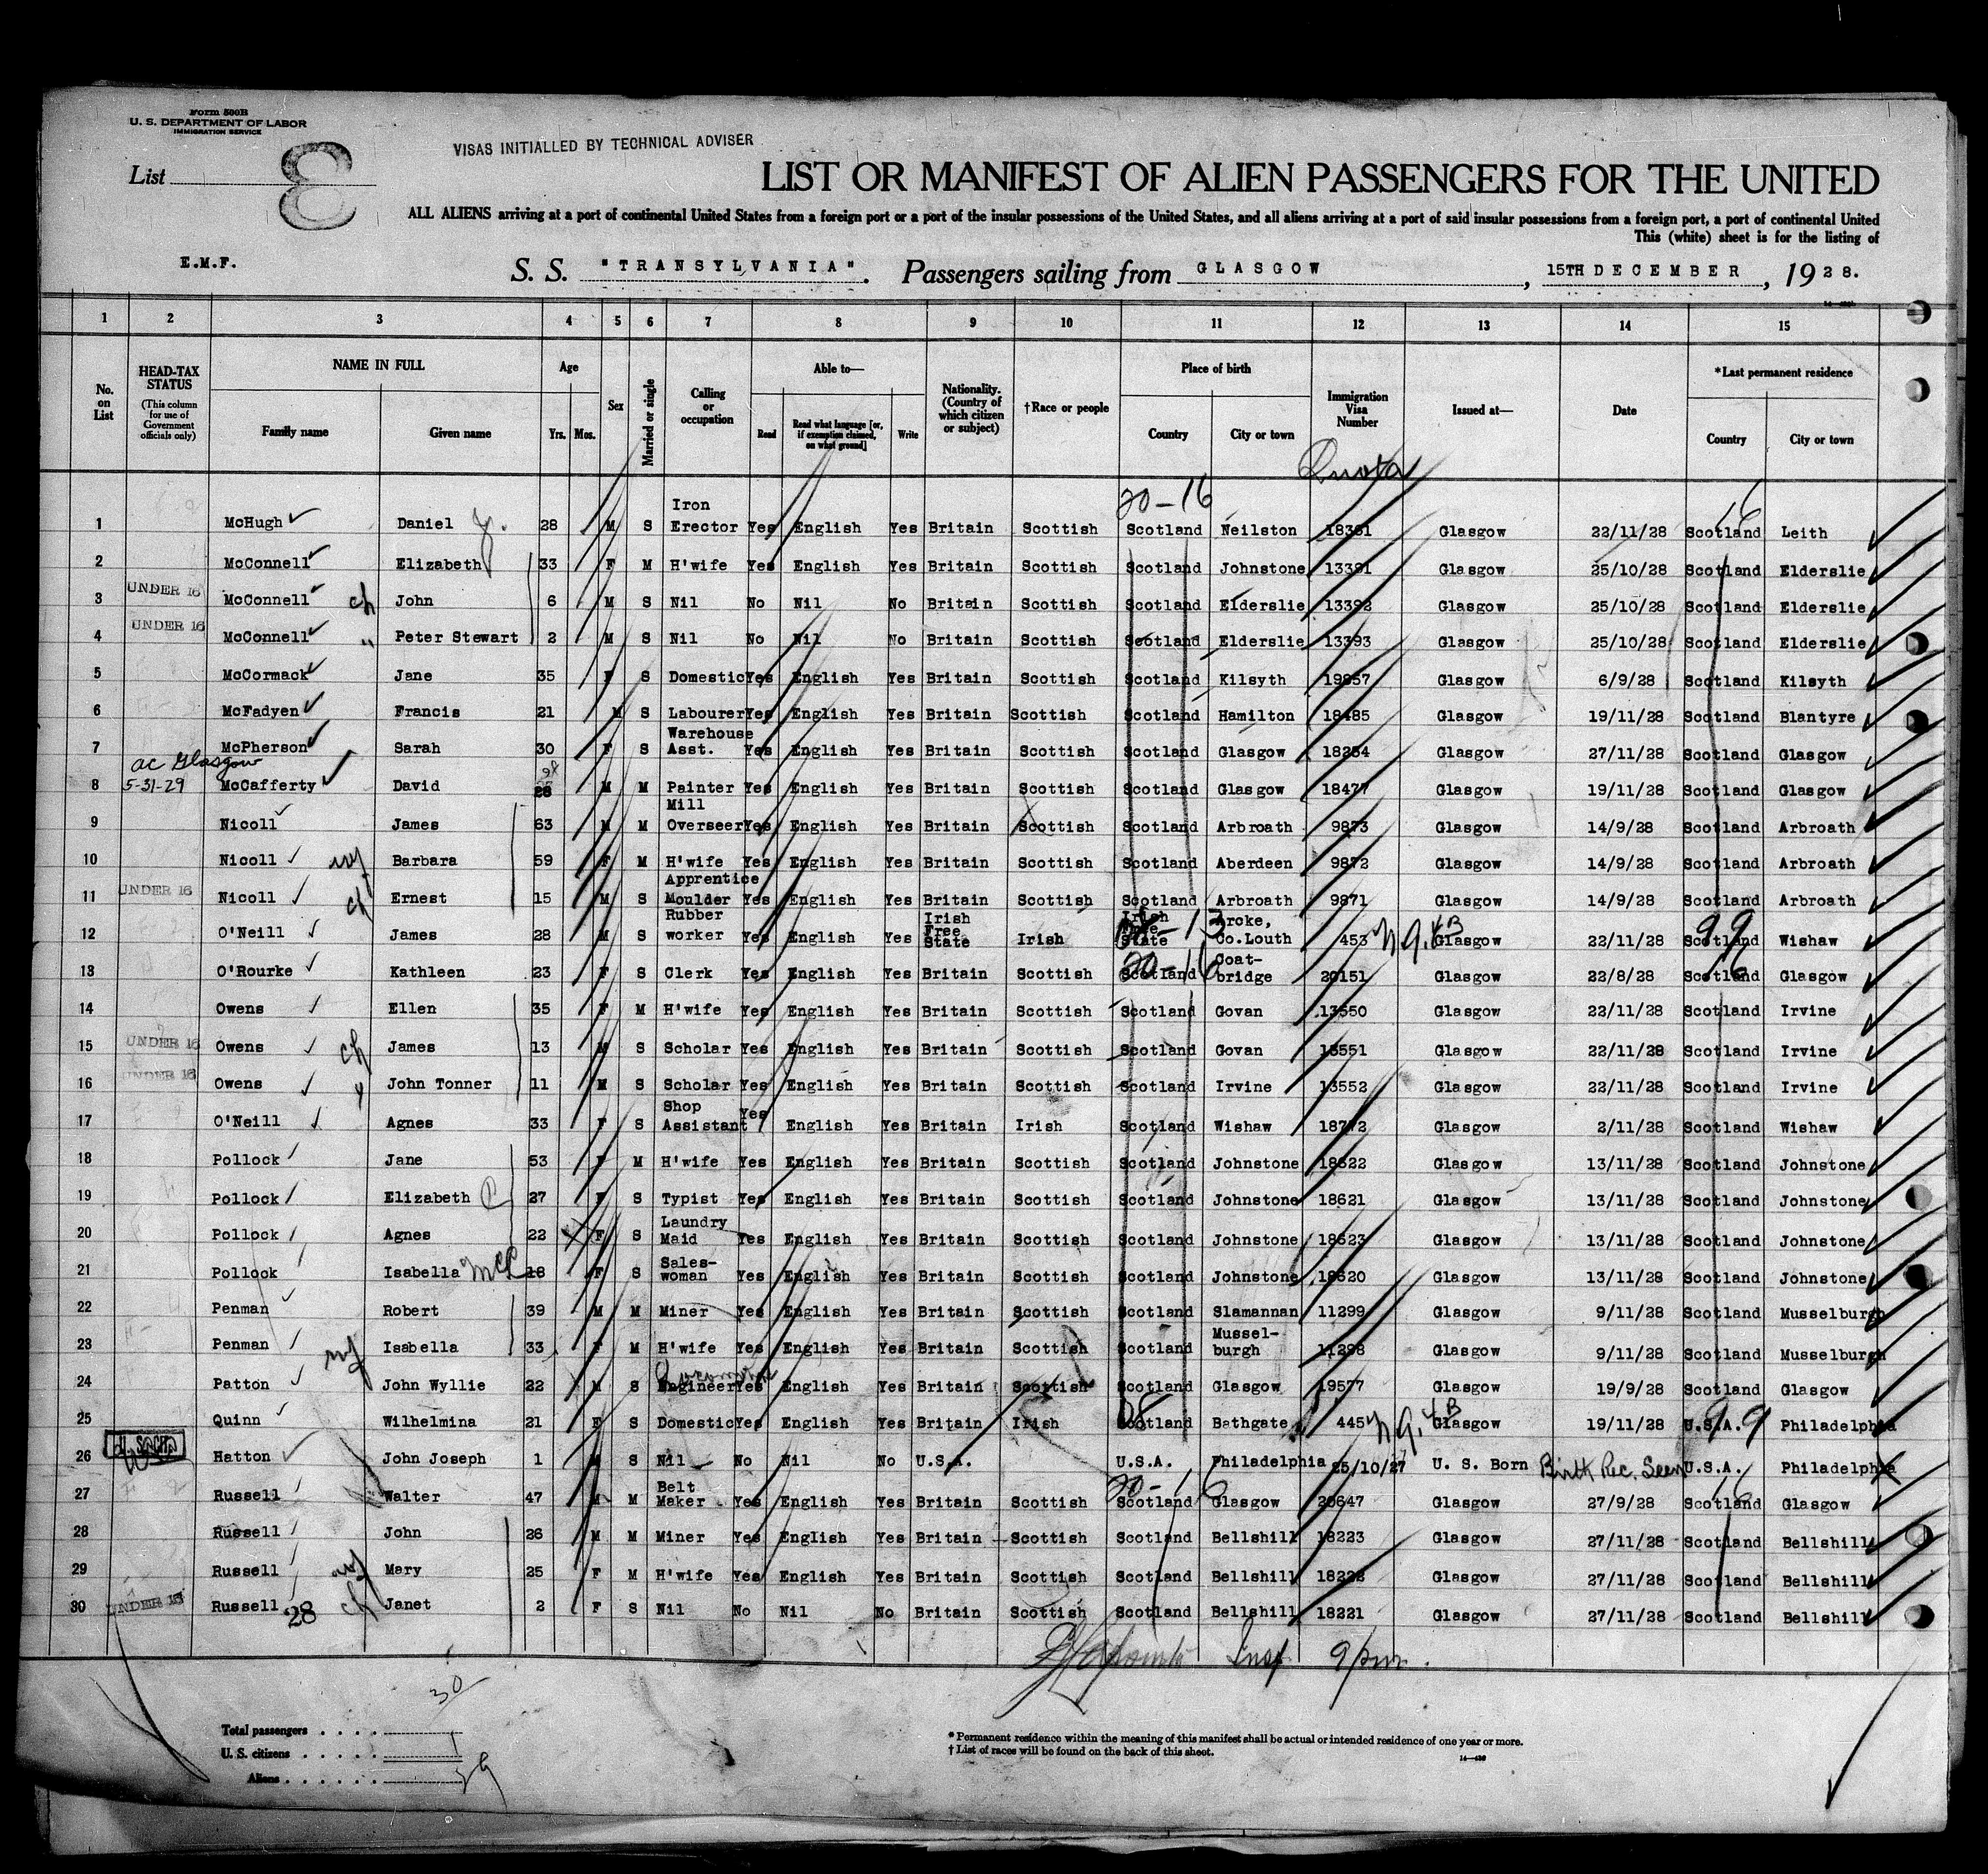 Form 500B
U. S. DEPARTMENT OF LABOR
IMMIGRATION SERVICE
VISAS INITIALLED BY TECHNICAL ADVISER
List 8
LIST OR MANIFEST OF ALIEN PASSENGERS FOR THE UNITED
ALL ALIENS arriving at a port of continental United States from a foreign port or a port of the insular possessions of the United States, and all aliens arriving at a port of said insular possessions from a foreign port, a port of continental United
This (white) sheet is for the listing of
E.M.F. S. S. "TRANSYLVANIA". Passengers sailing from GLASGOW, 15TH DECEMBER, 1928.
1 2 3 4 5 6 7 8 9 10 11 12 13 14 15
No. on List HEAD-TAX STATUS (This column for use of Government officials only) NAME IN FULL Family name Given name Age Yrs. Mos. Sex Married or single Calling or occupation Able to— Read Read what language [or, if exemption claimed, on what ground] Write Nationality. (Country of which citizen or subject) †Race or people Place of birth Country City or town Immigration Visa Number Issued at— Date *Last permanent residence Country City or town
Quota
20-16 16
1 McHugh Daniel J. 28 M S Iron Erector Yes English Yes Britain Scottish Scotland Neilston 18361 Glasgow 22/11/28 Scotland Leith
2 McConnell Elizabeth 33 F M H'wife Yes English Yes Britain Scottish Scotland Johnstone 13391 Glasgow 25/10/28 Scotland Elderslie
3 UNDER 16 McConnell ch John 6 M S Nil No Nil No Britain Scottish Scotland Elderslie 13392 Glasgow 25/10/28 Scotland Elderslie
4 UNDER 16 McConnell " Peter Stewart 2 M S Nil No Nil No Britain Scottish Scotland Elderslie 13393 Glasgow 25/10/28 Scotland Elderslie
5 McCormack Jane 35 F S Domestic Yes English Yes Britain Scottish Scotland Kilsyth 19857 Glasgow 6/9/28 Scotland Kilsyth
6 McFadyen Francis 21 M S Labourer Yes English Yes Britain Scottish Scotland Hamilton 18485 Glasgow 19/11/28 Scotland Blantyre
7 McPherson Sarah 30 F S Warehouse Asst. Yes English Yes Britain Scottish Scotland Glasgow 18264 Glasgow 27/11/28 Scotland Glasgow
ac Glasgow
8 5-31-29 McCafferty David 28 M M Painter Yes English Yes Britain Scottish Scotland Glasgow 18477 Glasgow 19/11/28 Scotland Glasgow
9 Nicoll James 63 M M Mill Overseer Yes English Yes Britain Scottish Scotland Arbroath 9873 Glasgow 14/9/28 Scotland Arbroath
10 Nicoll wf Barbara 59 F M H'wife Yes English Yes Britain Scottish Scotland Aberdeen 9872 Glasgow 14/9/28 Scotland Arbroath
11 UNDER 16 Nicoll ch Ernest 15 M S Apprentice Moulder Yes English Yes Britain Scottish Scotland Arbroath 9871 Glasgow 14/9/28 Scotland Arbroath
12 O'Neill James 28 M S Rubber worker Yes English Yes Irish Free State Irish Irish Free State 08-13 Co.Louth 453 N.Q. 4B Glasgow 22/11/28 Scotland 99 Wishaw
13 O'Rourke Kathleen 23 F S Clerk Yes English Yes Britain Scottish Scotland 20-16 Coat-bridge 20151 Glasgow 22/8/28 Scotland 16 Glasgow
14 Owens Ellen 35 F M H'wife Yes English Yes Britain Scottish Scotland Govan 13550 Glasgow 22/11/28 Scotland Irvine
15 UNDER 16 Owens ch James 13 M S Scholar Yes English Yes Britain Scottish Scotland Govan 13551 Glasgow 22/11/28 Scotland Irvine
16 UNDER 16 Owens John Tonner 11 M S Scholar Yes English Yes Britain Scottish Scotland Irvine 13552 Glasgow 22/11/28 Scotland Irvine
17 O'Neill Agnes 33 F S Shop Assistant Yes English Yes Britain Irish Scotland Wishaw 18772 Glasgow 2/11/28 Scotland Wishaw
18 Pollock Jane 53 F M H'wife Yes English Yes Britain Scottish Scotland Johnstone 18622 Glasgow 13/11/28 Scotland Johnstone
19 Pollock Elizabeth 27 F S Typist Yes English Yes Britain Scottish Scotland Johnstone 18621 Glasgow 13/11/28 Scotland Johnstone
20 Pollock Agnes 22 F S Laundry Maid Yes English Yes Britain Scottish Scotland Johnstone 18623 Glasgow 13/11/28 Scotland Johnstone
21 Pollock Isabella 18 F S Sales-woman Yes English Yes Britain Scottish Scotland Johnstone 18620 Glasgow 13/11/28 Scotland Johnstone
22 Penman Robert 39 M M Miner Yes English Yes Britain Scottish Scotland Slamannan 11299 Glasgow 9/11/28 Scotland Musselburgh
23 Penman wf Isabella 33 F M H'wife Yes English Yes Britain Scottish Scotland Mussel-burgh 11298 Glasgow 9/11/28 Scotland Musselburgh
24 Patton John Wyllie 22 M S Engineer Yes English Yes Britain Scottish Scotland Glasgow 19577 Glasgow 19/9/28 Scotland Glasgow
25 Quinn Wilhelmina 21 F S Domestic Yes English Yes Britain Irish Scotland 08 Bathgate 445 N.Q. 4B Glasgow 19/11/28 U.S.A. 99 Philadelphia
26 Hatton John Joseph 1 M S Nil No Nil No U.S.A. U.S.A. Philadelphia 25/10/27 U. S. Born Birth Rec. Seen U.S.A. Philadelphia
27 Russell Walter 47 M M Belt Maker Yes English Yes Britain Scottish Scotland 20-16 Glasgow 20647 Glasgow 27/9/28 Scotland 16 Glasgow
28 Russell John 26 M M Miner Yes English Yes Britain Scottish Scotland Bellshill 18223 Glasgow 27/11/28 Scotland Bellshill
29 Russell wf Mary 25 F M H'wife Yes English Yes Britain Scottish Scotland Bellshill 18222 Glasgow 27/11/28 Scotland Bellshill
30 UNDER 16 Russell 28 ch Janet 2 F S Nil No Nil No Britain Scottish Scotland Bellshill 18221 Glasgow 27/11/28 Scotland Bellshill
Insp
Total passengers . . . . 30
U. S. citizens . . . . 1
Aliens . . . . . . 29
* Permanent residence within the meaning of this manifest shall be actual or intended residence of one year or more.
† List of races will be found on the back of this sheet.